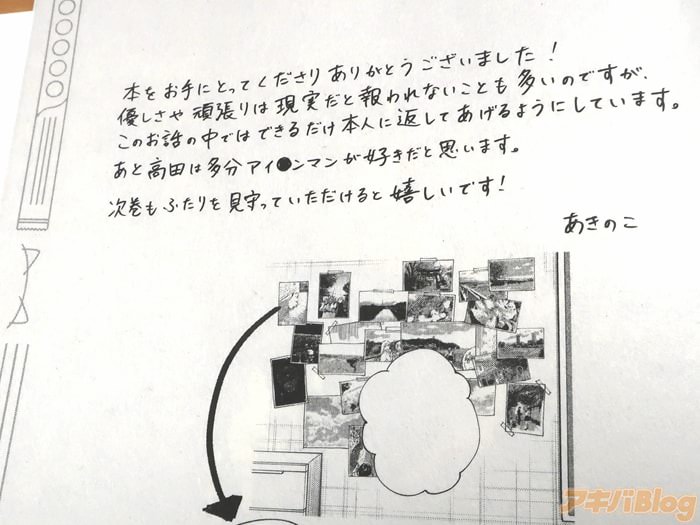 本をお手にとってくださりありがとうございました!
優しさや頑張りは現実だと報われないことも多いのですが、
このお話の中ではできるだけ本人に返してあげるようにしています。
あと高田は多分アイ●ンマンが好きだと思います。
次巻もふたりを見守っていただけると嬉しいです!
あきのこ
アキバBlog